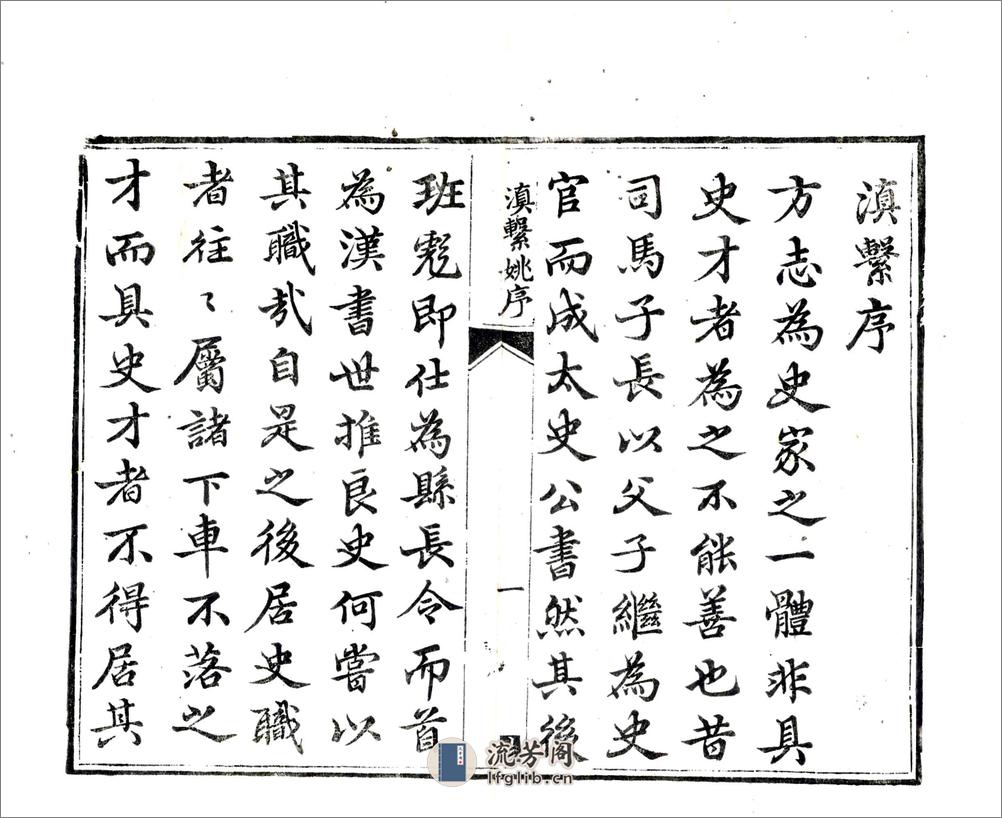 滇繫序
方志為史家之一體非具
史才者為之不能善也昔
司馬子長以父子繼為史
官而成太史公書然其後
滇繫姚序
一
班彪即仕為縣長令而首
為漢書世推良史何嘗以
其職哉自是之後居史職
者往〻屬諸下車不落之
才而具史才者不得居其
流芳阁
lfglib.cn